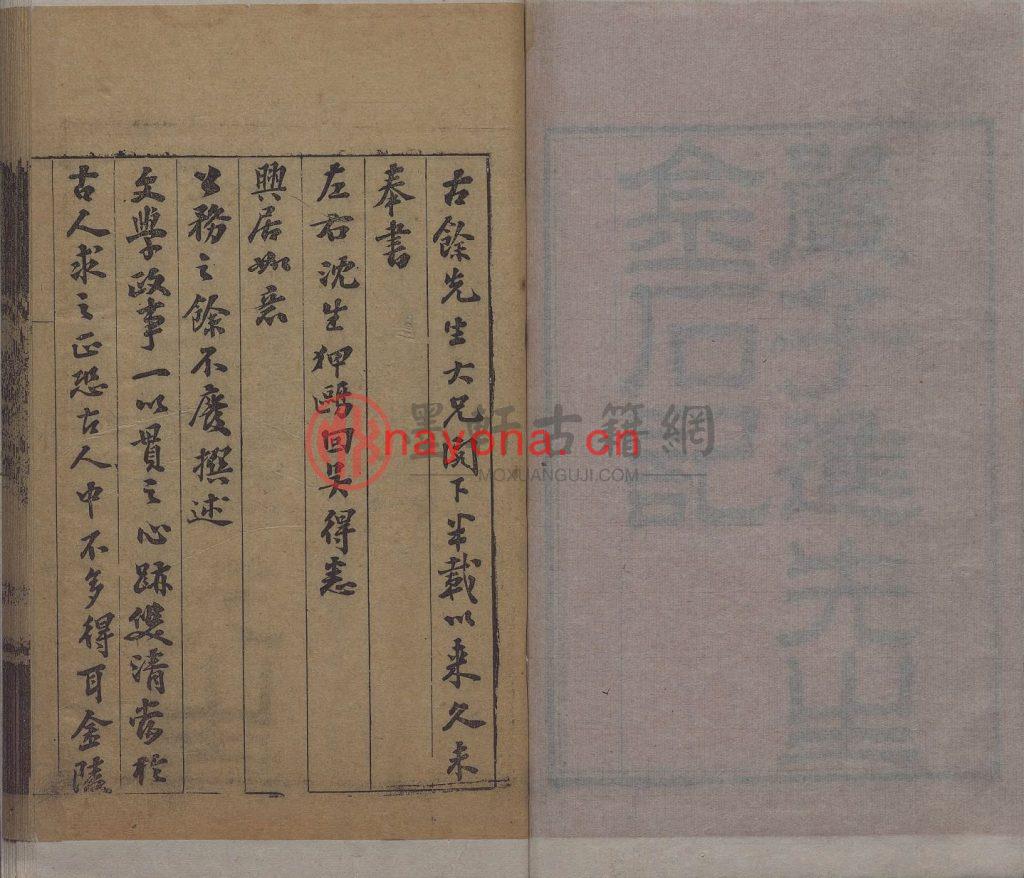 嚴子進先生
金石記
古餘先生大兄閣下半載以来久未
奉書
左右沈生狎鷗回吳得悉
興居如意
公務之餘不廢撰述
文學政事一以貫之心跡雙清當於
古人求之正恐古人中不多得耳金陵
墨軒古籍網
nayona.cn
MOXUANGUJI.COM